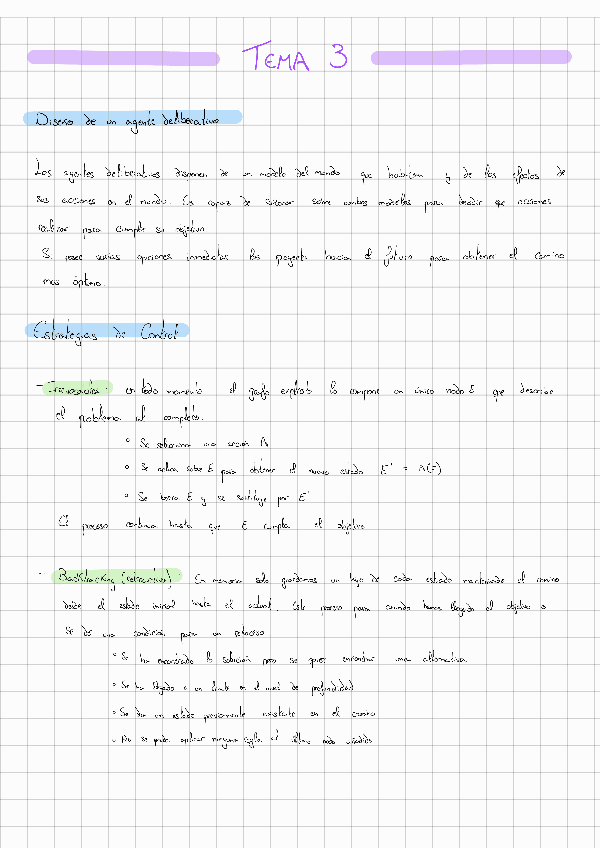 TEMA 3
Diseño de un agente deliberativo
Los agentes deliberativos disponen de un modelo del mundo que habitan y de los efectos de
sus acciones en el mundo. Es capaz de razonar sobre ambos modelos para decidir que acciones
realizar para cumplir su objetivo
Si posee varias opciones inmediatas las proyecta hacia el futuro para obtener el camino
mas óptimo.
Estrategias de Control
- Irrevocable: en todo momento el grafo explícito lo compone un único nodo E que describe
el problema al completo.
° Se selecciona una acción A
° Se aplica sobre E para obtener el nuevo estado E' = A(E)
° Se borra E y se sustituye por E'
El proceso continua hasta que E cumpla el objetivo
- Backtracking (retroactivo): En memoria solo guardamos un hijo de cada estado manteniendo el camino
desde el estado inicial hasta el actual. Este proceso para cuando hemos llegado al objetivo o
se da una condición para un retroceso
° Se ha encontrado la solución pero se quiere encontrar una alternativa
° Se ha llegado a un límite en el nivel de profundidad
° Se da un estado previamente existente en el camino
° No se puede aplicar ninguna regla al último nodo añadido